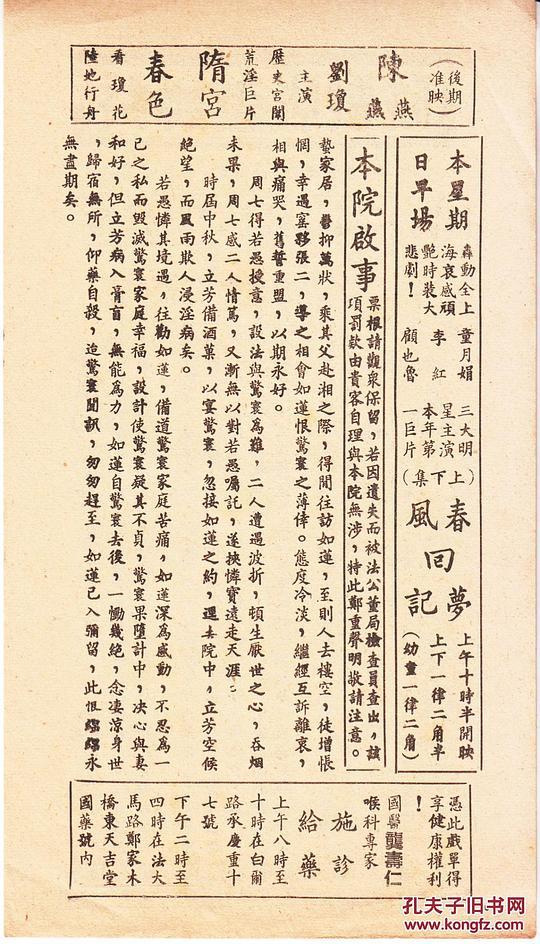 (後期准映)
陳燕燕
劉瓊
主演
歷史宮闈
荒淫巨片
隋宮
春色
看瓊花
陸地行舟
本星期
日早場
轟動全上
海哀感頑
艷時裝大
悲劇!
童月娟
李紅
顧也魯
三大明
星主演
本年第
一巨片
(上下集)
春風
回
夢記
上午十時半開映
上下一律二角半
(幼童一律二角)
本院啟事
票根請觀衆保留,若因遺失而被法公董局檢查員查出,該
項罰欵由貴客自理與本院無涉,特此鄭重聲明敬請注意。
驚家居,鬱抑萬狀,乘其父赴湘之際,得間往訪如蓮,至則人去樓空,徒增悵
惘,幸遇窰夥張二,導之相會如蓮恨驚寰之薄倖。態度冷淡,繼經互訴離衷,
相與痛哭,舊誓重盟,以期永好。
周七得若愚授意,設法與驚寰為難,二人遭遇波折,頓生厭世之心,吞烟
未果,周七感二人情篤,又漸無以對若愚囑託,遂挾憐寶遠走天涯:
時屆中秋,立芳備酒菓,以宴驚寰,忽接如蓮之約,逕去院中,立芳空候
絕望,而風雨欺人浸淫病矣。
若愚憐其境遇,往勸如蓮,備道驚寰家庭苦痛,如蓮深為感動,不忍為一
己之私而毀滅驚寰家庭幸福,設計使驚寰疑其不貞,驚寰果墮計中,决心與妻
和好,但立芳病入膏肓,無能為力,如蓮自驚寰去後,一慟幾絕,念凄涼身世
,歸宿無所,仰藥自殺,迨驚寰聞訊,匆匆趕至,如蓮已入彌留,此恨綿綿永
無盡期矣。
憑此戲單得
享健康權利
!
國醫龔壽仁
喉科專家
施診
給藥
上午八時至
十時在白爾
路承慶里十
七號
下午二時至
四時在法大
馬路鄭家木
橋東天吉堂
國藥號內
孔夫子旧书网
www.kongfz.com